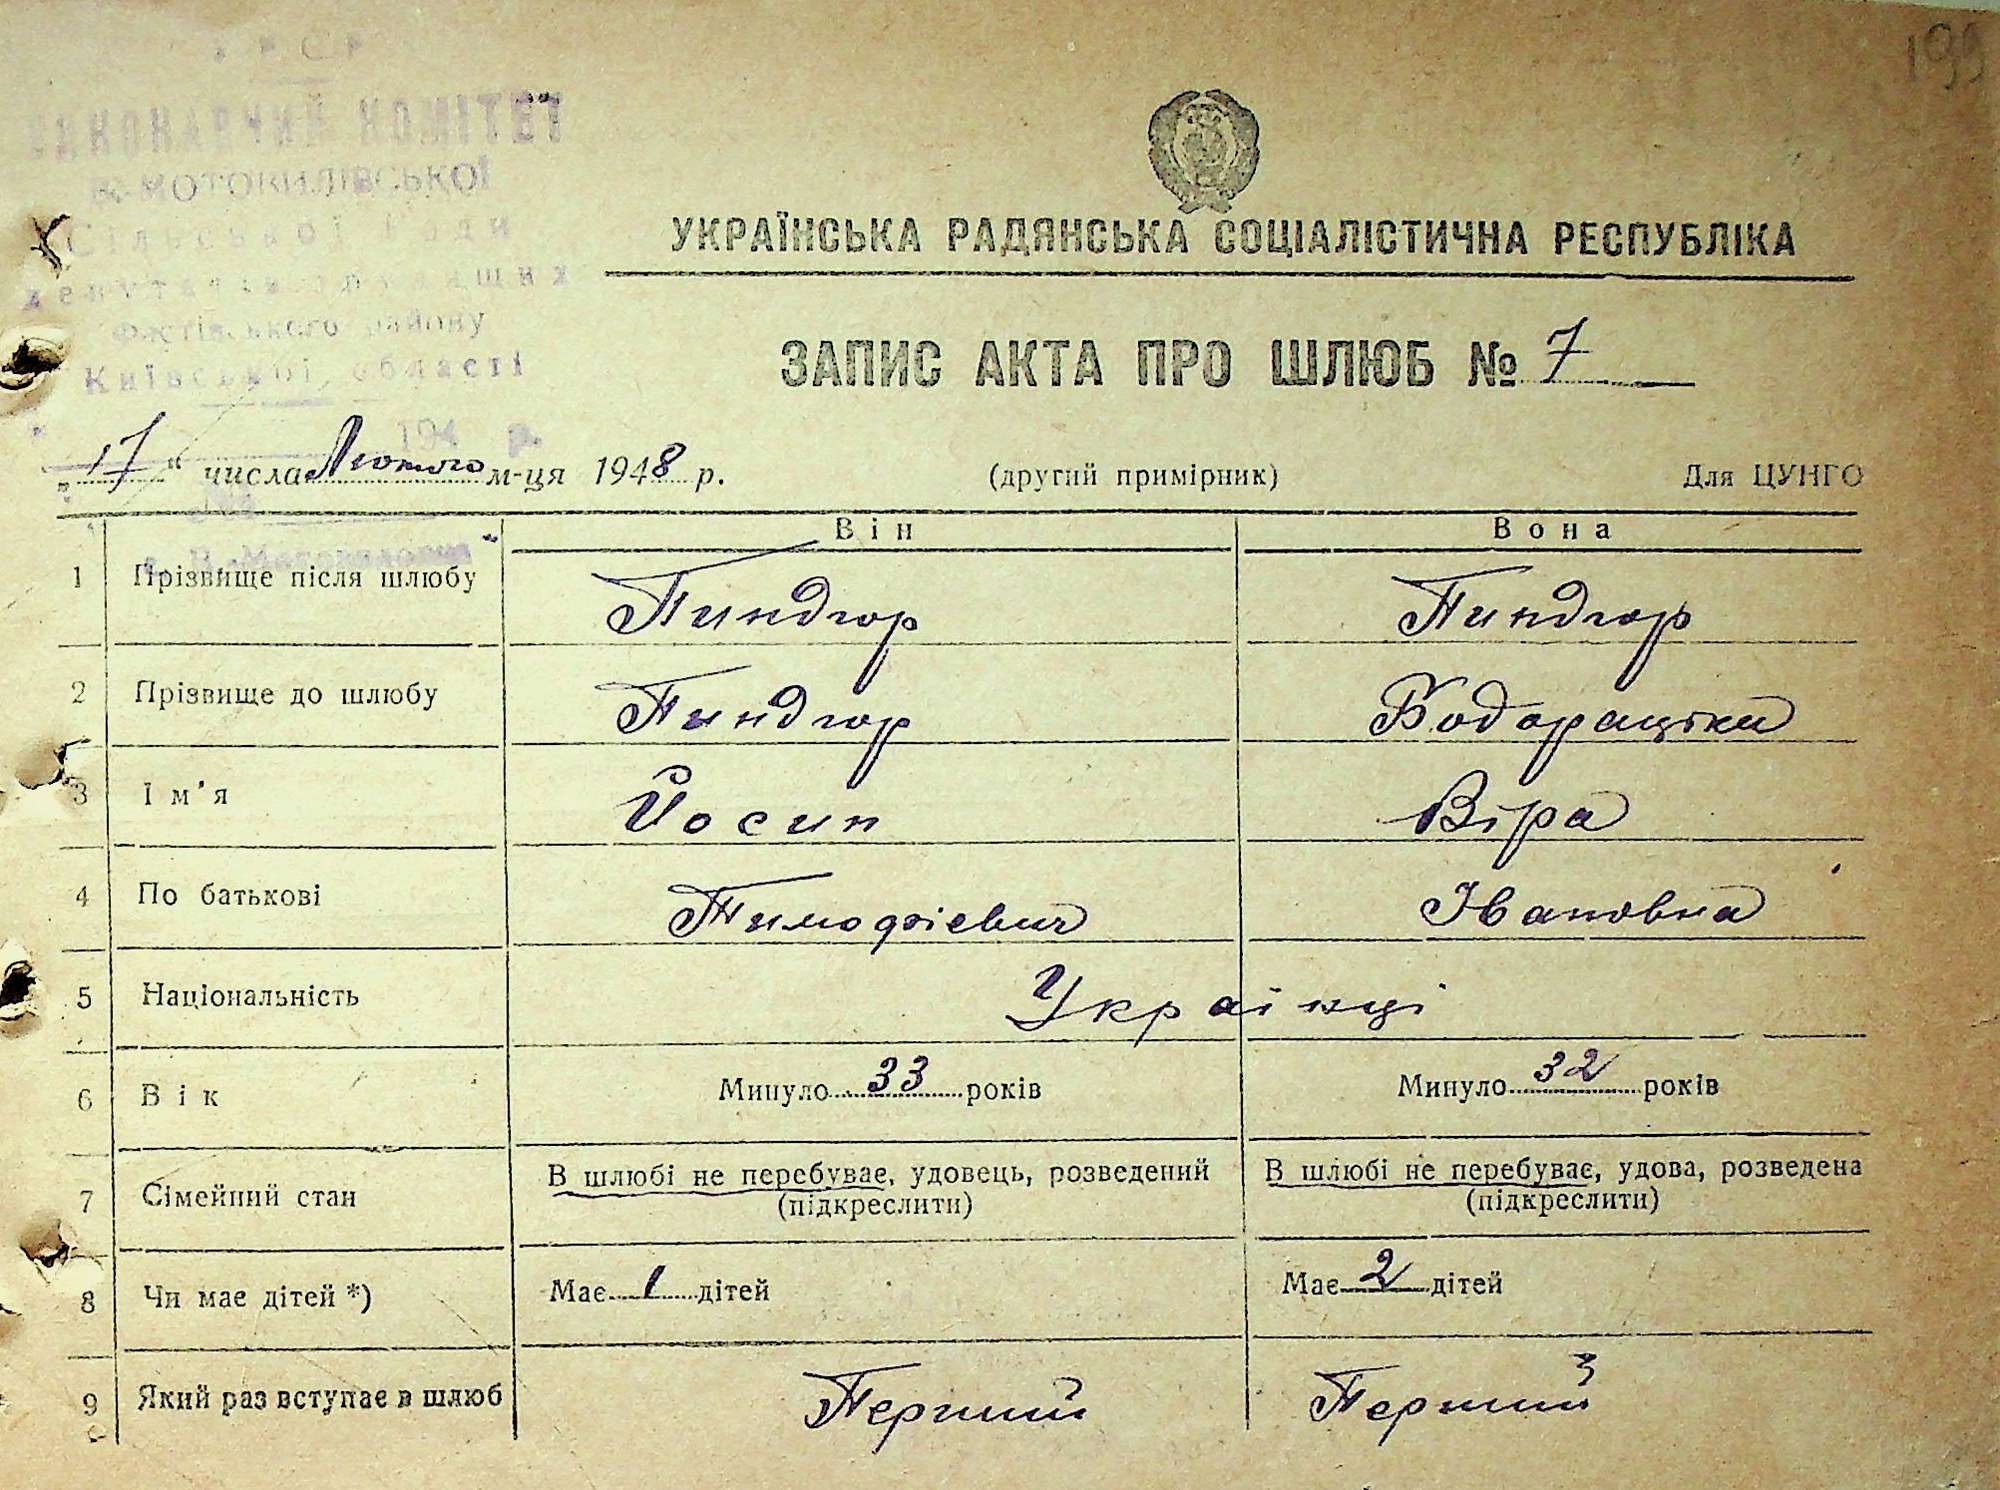 199
КОМІТЕТ
МОТОВИЛІВСЬКОЇ
Сільської Ради
району
Київської області
194 р.
УКРАЇНСЬКА РАДЯНСЬКА СОЦІАЛІСТИЧНА РЕСПУБЛІКА
ЗАПИС АКТА ПРО ШЛЮБ № 7
„17“ числа Лютого м-ця 1948 р. (другий примірник) Для ЦУНГО
Він Вона
1 Прізвище після шлюбу Пиндюр Пиндюр
2 Прізвище до шлюбу Пиндюр
3 Ім'я Йосип Віра
4 По батькові Тимофієвич Івановна
5 Національність Українці
6 Вік Минуло 33 років Минуло 32 років
7 Сімейний стан В шлюбі не перебуває, удовець, розведений В шлюбі не перебуває, удова, розведена
(підкреслити) (підкреслити)
8 Чи має дітей *) Має 1 дітей Має 2 дітей
9 Який раз вступає в шлюб Перший Перший